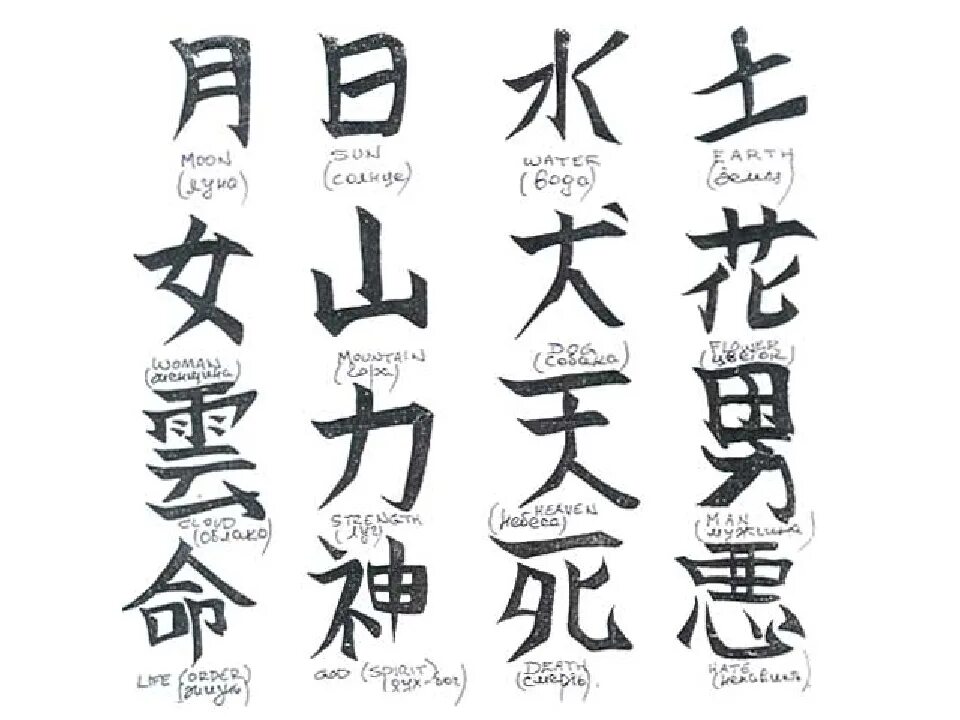 月 日 水 土
MOON SUN WATER EARTH
(луна) (солнце) (вода) (земля)
女 山 犬 花
WOMAN MOUNTAIN DOG FLOWER
(женщина) (гора) (собака) (цветок)
雲 力 天 男
CLOUD STRENGTH HEAVEN MAN
(облако) (небеса) (мужчина)
命 神 死 悪
LIFE (ORDER) GOD (SPIRIT) DEATH HATE
(дух-бог) (смерть)